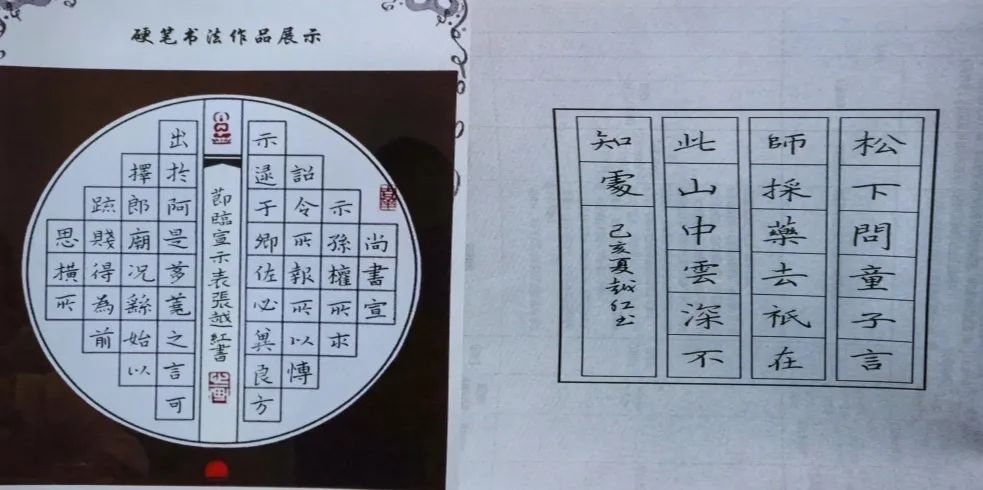 硬笔书法作品展示
尚書宣
示孫權所求
詔令所報所以慱
示逯于卿佐必兾良方
節臨宣示表張越紅書
出扵阿是芻蕘之言可
擇郎廟况繇始以
踈賤得為前
思横所
松下問童子言
師採藥去祇在
此山中雲深不
知處
己亥夏越红书